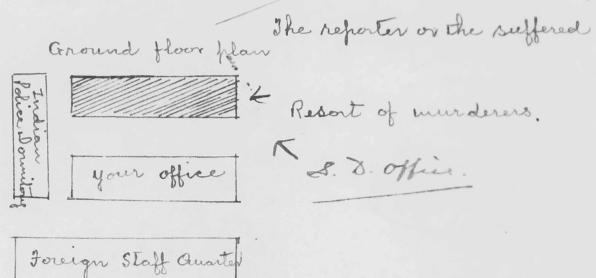 The reporter or the suffered
Ground floor plan
Indian
Police Dormitory
Resort of murderers.
your office
S. D. office.
Foreign Staff Quarter